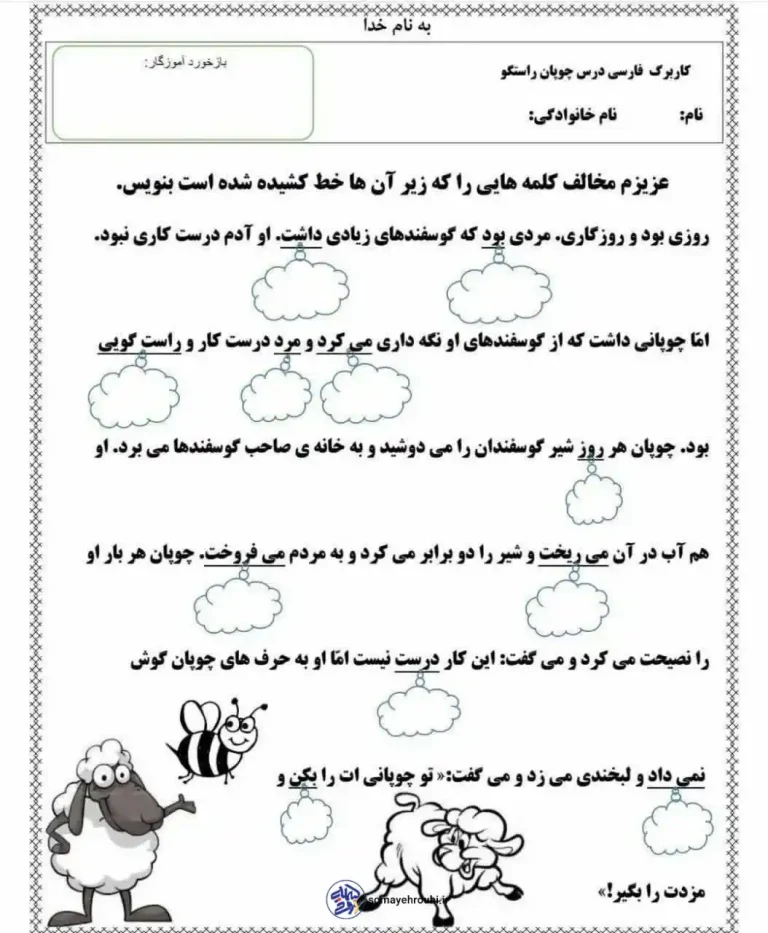 به نام خدا
کاربرگ فارسی درس چوپان راستگو
بازخورد آموزگار:
نام: نام خانوادگی:
عزیزم مخالف کلمه هایی را که زیر آن ها خط کشیده شده است بنویس.
روزی بود و روزگاری. مردی بود که گوسفندهای زیادی داشت. او آدم درست کاری نبود.
امّا چوپانی داشت که از گوسفندهای او نگه داری می کرد و مرد درست کار و راست گویی
بود. چوپان هر روز شیر گوسفندان را می دوشید و به خانه ی صاحب گوسفندها می برد. او
هم آب در آن می ریخت و شیر را دو برابر می کرد و به مردم می فروخت. چوپان هر بار او
را نصیحت می کرد و می گفت: این کار درست نیست امّا او به حرف های چوپان گوش
نمی داد و لبخندی می زد و می گفت:« تو چوپانی ات را بکن و
مزدت را بگیر!»
somayehrouhi.ir